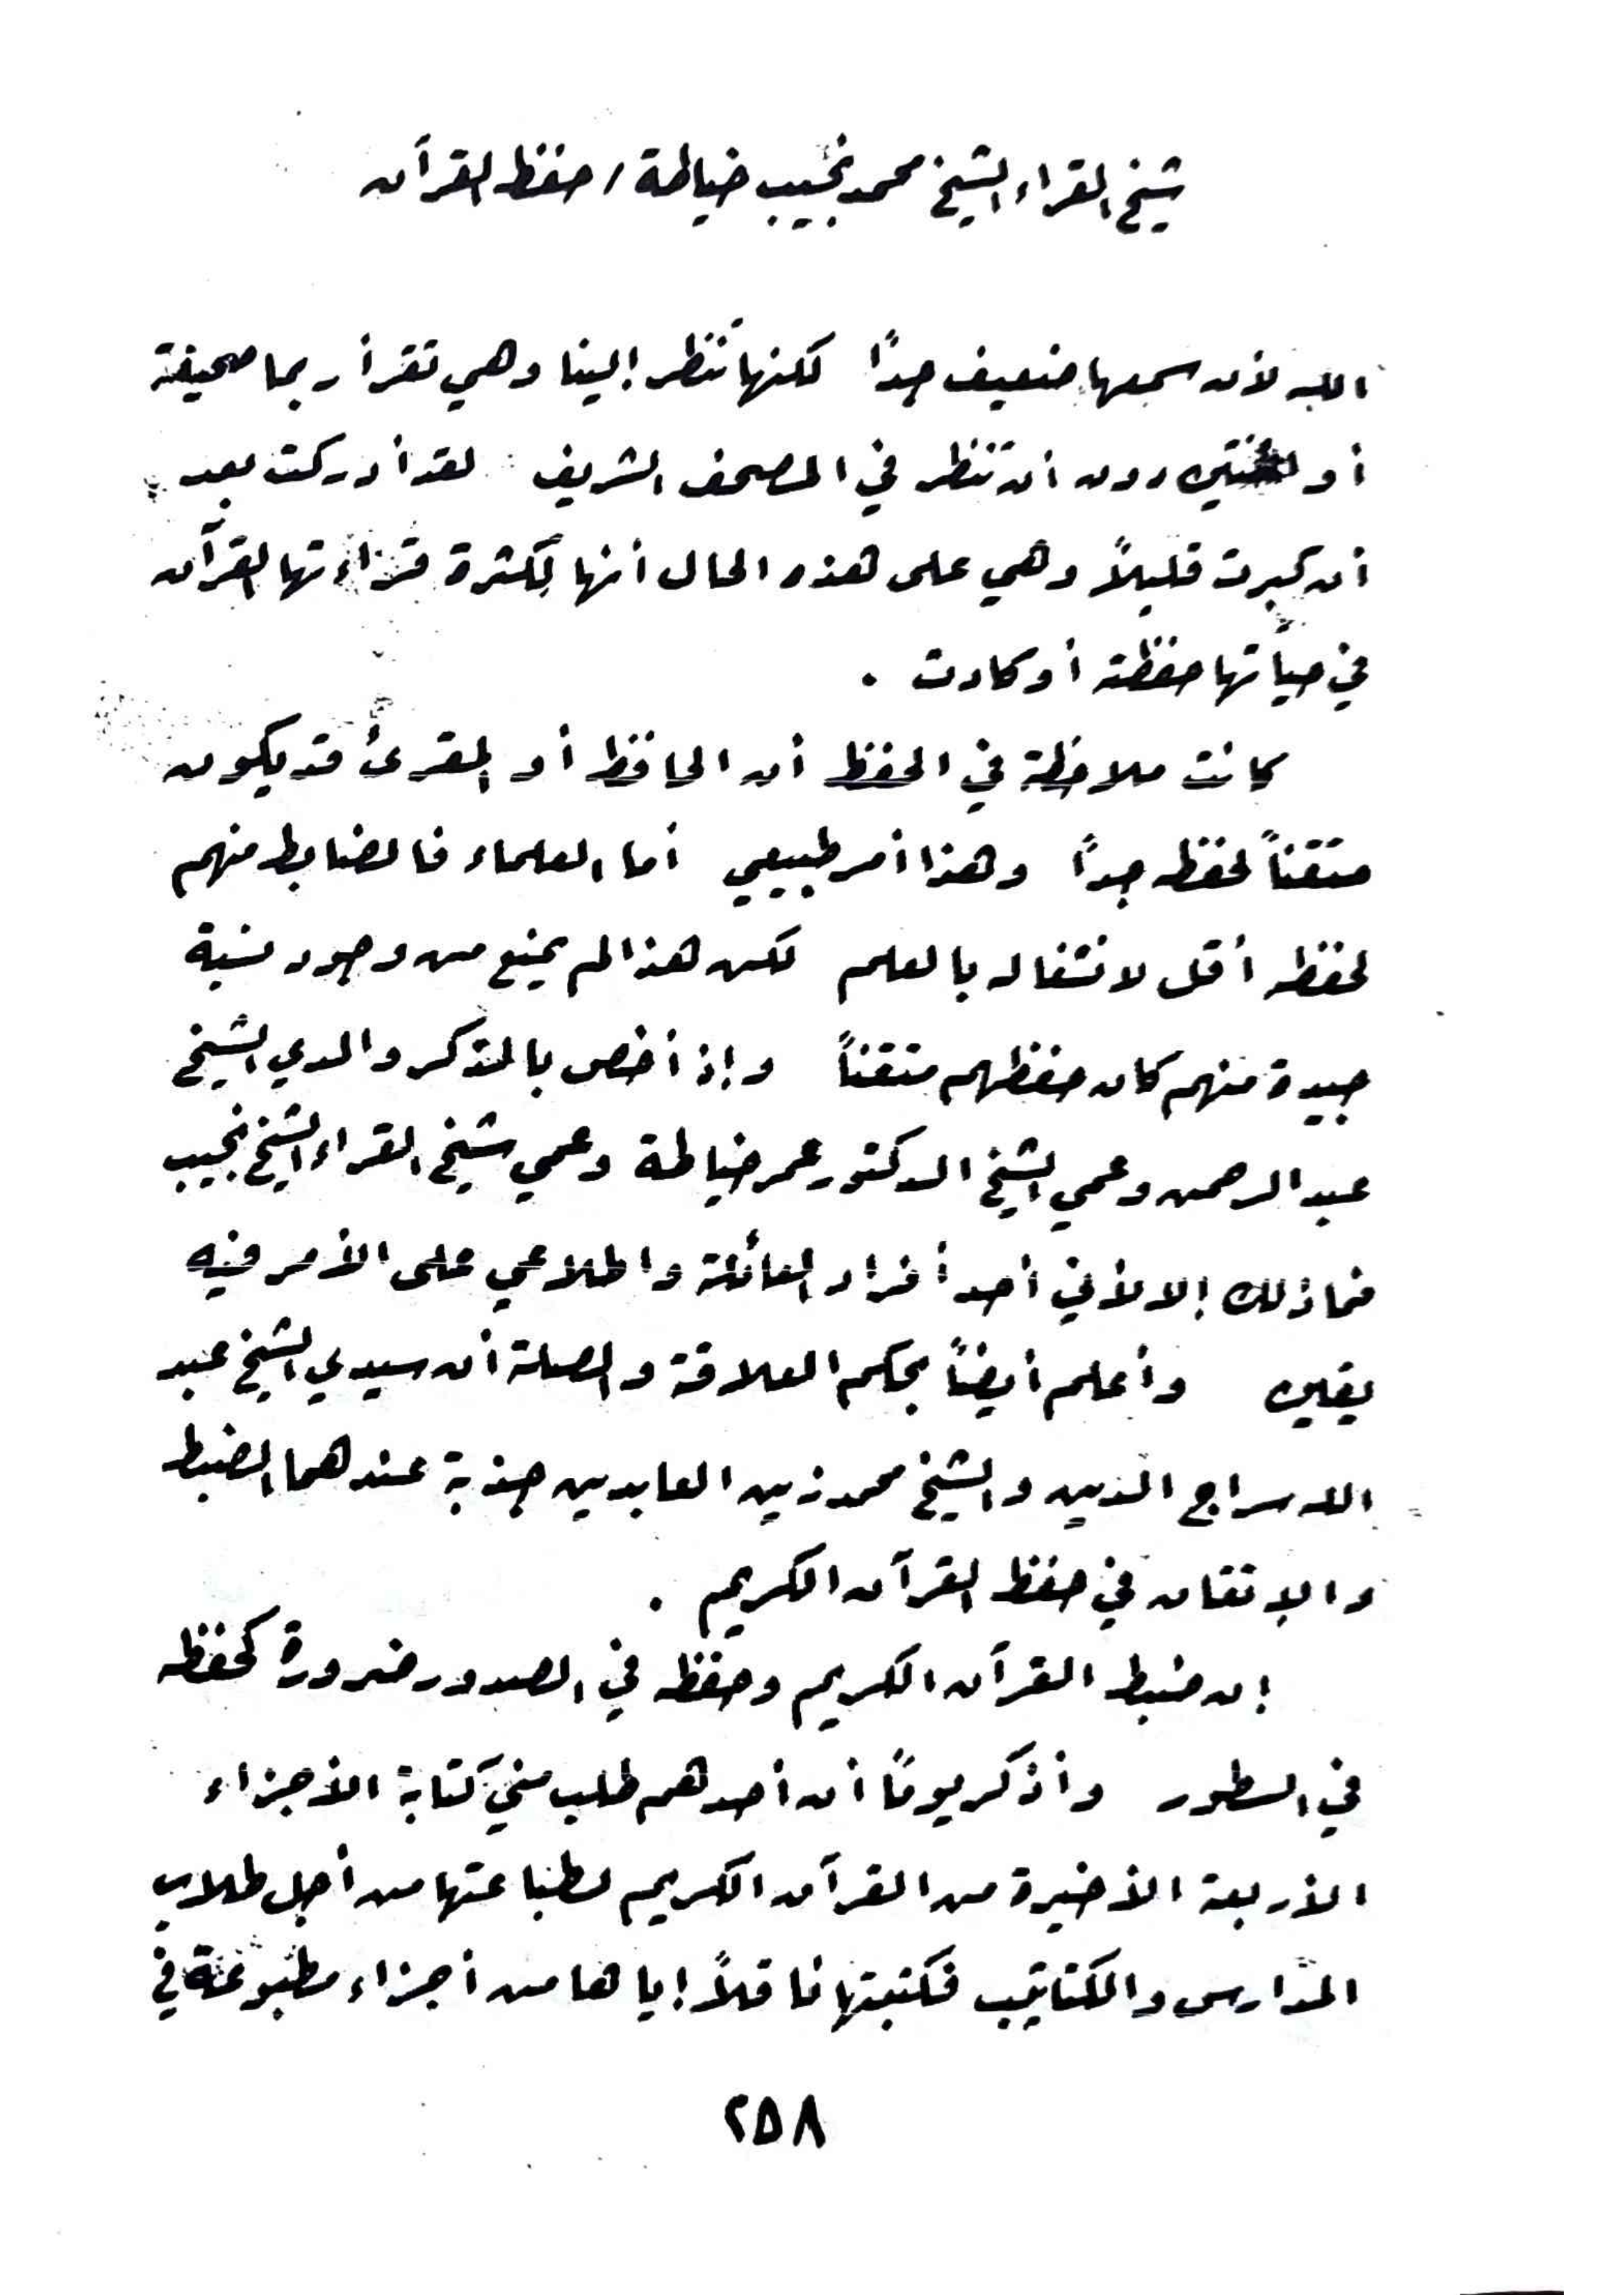 شيخ القراء الشيخ محمد نجيب خياطة / حفظ القرآن
الله لأن سمعها ضعيف جداً لكنها تنظر إلينا وهي تقرأ ربما صحيفة
أو دون أن تنظر في المصحف الشريف لقد أدركت بعد
أن كبرت قليلاً وهي على هذه الحال أنها لكثرة قراءتها القرآن
في حياتها حفظته أو كادت .
كانت ملاحظة في الحفظ أن الحافظ أو المقرئ قد يكون
متقناً لحفظه جداً وهذا أمر طبيعي أما العلماء فالضابط منهم
لحفظه أقل لانشغاله بالعلم لكن هذا لم يمنع من وجود نسبة
جيدة منهم كان حفظهم متقناً وإذ أخص بالذكر والدي الشيخ
عبد الرحمن وعمي الشيخ الدكتور عمر خياطة وعمي شيخ القراء الشيخ نجيب
فما ذلك إلا لأني أحد أفراد العائلة واطلاعي على الأمر فيه
يقين وأعلم أيضاً بحكم العلاقة والصلة أن سيدي الشيخ عبد
الله سراج الدين والشيخ محمد زين العابدين جذبة عندهما الضبط
والإتقان في حفظ القرآن الكريم .
إن ضبط القرآن الكريم وحفظه في الصدور ضرورة كحفظه
في السطور وأذكر يوماً أن أحدهم طلب مني كتابة الأجزاء
الأربعة الأخيرة من القرآن الكريم لطباعتها من أجل طلاب
المدارس والكتاتيب فكتبتها ناقلاً إياها من أجزاء مطبوعة في
٢٥٨